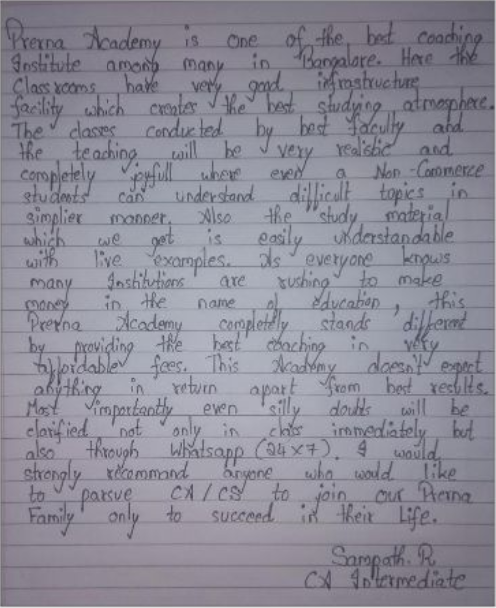 Prerna Academy is one of the best coaching
Institute among many in Bangalore. Here the
Classrooms have very good infrastructure
facility which creates the best studying atmosphere.
The classes conducted by best faculty and
the teaching will be very realistic and
completely joyfull where even a Non-Commerce
students can understand difficult topics in
simplier manner. Also the study material
which we get is easily understandable
with live examples. As everyone knows
many Institutions are rushing to make
money in the name of education, this
Prerna Academy completely stands different
by providing the best coaching in very
affordable fees. This Academy doesn't expect
anything in return apart from best results.
Most importantly even silly doubts will be
clarified not only in class immediately but
also through Whatsapp (24x7). I would
strongly recommand anyone who would like
to parsue CA/CS to join our Prerna
Family only to succeed in their Life.
Sampath. R
CA Intermediate